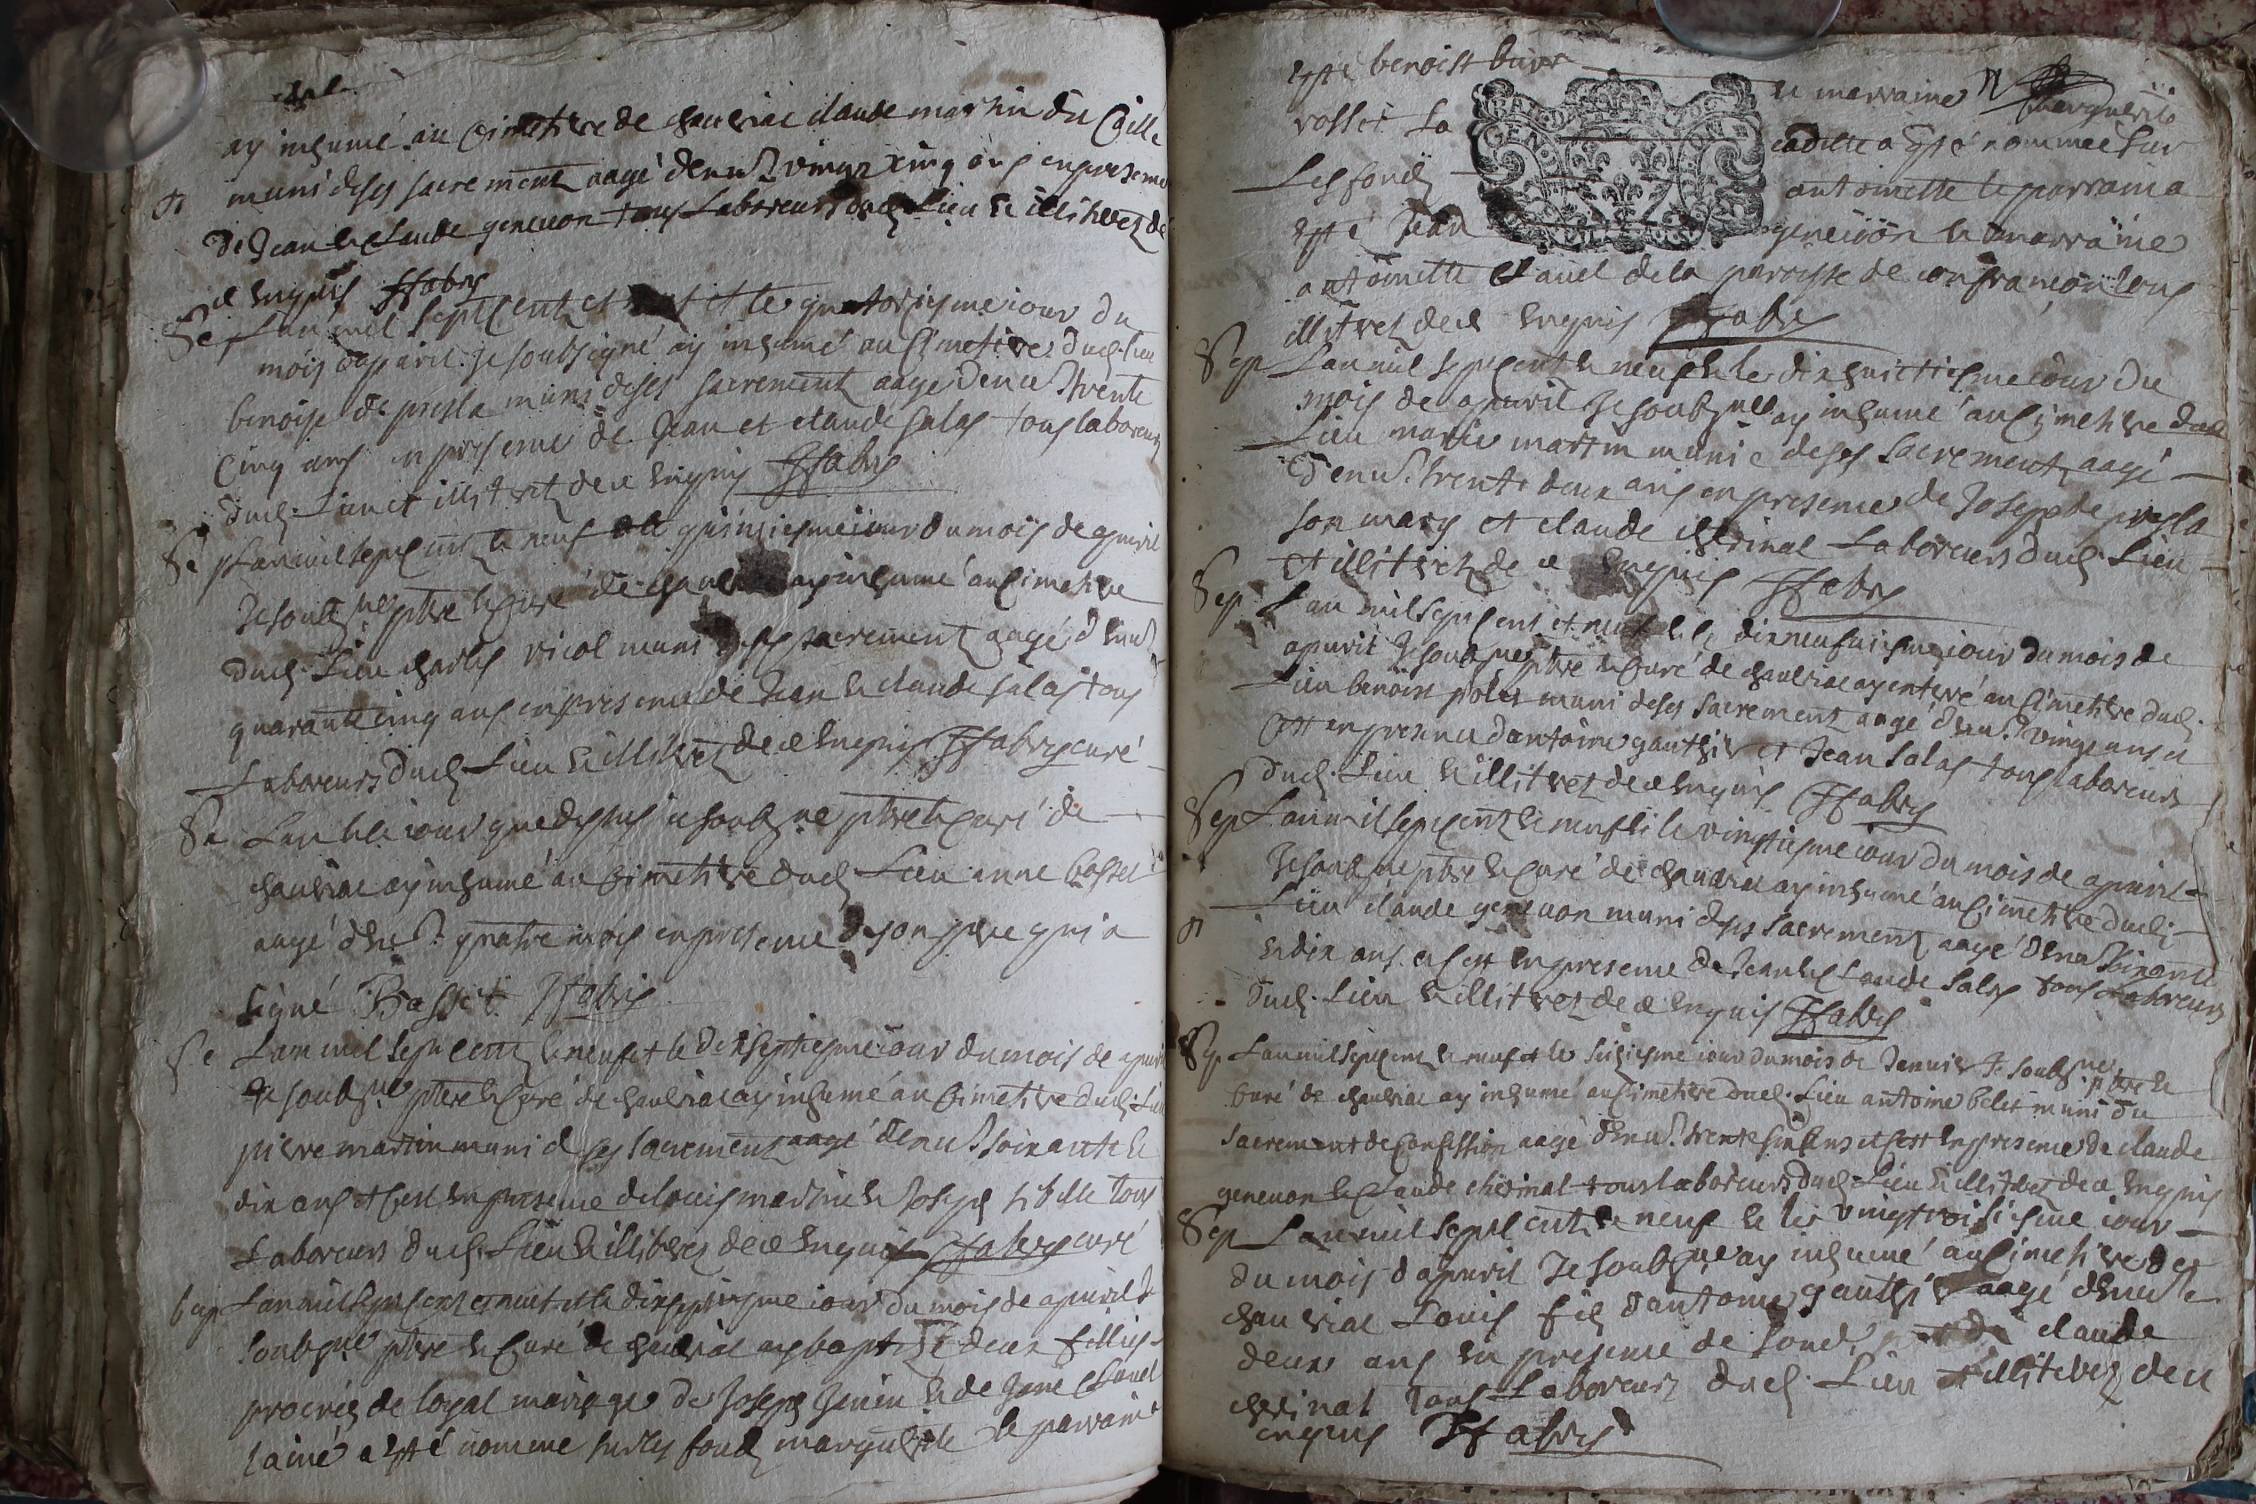 ay inhumé au cimetiere de chauriac claude martin du
muni deses sacrement aagé denu. vingt cinq ans en presence
de Jean et claude geneuon tous Laboreurs dud Lieu et illitrez de
ce enquis ffabry
Sep Lan mil septcent et neuf et le quatorziesme iour du
mois dapvril Je soubsigné ay inhumé au cimetiere dud. lieu
benoise de presla muni deses sacrement aagé denu. trente
cinq ans en presence de Jean et claude salas tous laboreurs
dud. Lieu et illitrez de ce enquis ffabry
Sep Lan mil sepcent et neuf et le quinziesme iour du mois de apuril
Je soubne ptbre et curé de chauriac ay inhumé au cimetiere
dud. Lieu charles ricol muni deses sacrement aagé denu.
quarante cinq ans en presence de Jean et claude salas tous
Laboreurs dud Lieu et illitrez de ce enquis ffabry curé
Se Lan et le iour que dessus ie soubne ptbre et curé de
chauriac ay inhumé au cimetiere dud Lieu anne basset
aagé denu. quatre mois en presence de son pere qui a
signé Basset ffabry
Se Lan mil sepcent et neuf et le dixseptiesme iour du mois de apuril
Je soubne ptbre et curé de chauriac ay inhumé au cimetiere dud. Lieu
pierre martin muni deses sacrement aagé denu. soixante et
dix ans et cest en presence de louis martin et Joseph tibille tous
Laboreurs dud. Lieu et illitrez de ce enquis ffabry curé
bap Lan mil sepcent et neuf et le dixseptiesme iour du mois de apuril Je
soubne ptbre et curé de chauriac ay baptizé deux fillies
procréés de loyal mariage de Joseph et de Jane Clauel
lainé a esté nomme sur les fonds marguerite le parrain a
esté benoist et marraine marguerite
rosset La cadette a esté nommée sur
Les fonds antoinette le parrain a
esté Jean geneuon et marraine
antoinette Clauel de la parroisse de tous
illitrez de ce enquis ffabry
Sep Lan mil sepcent et neuf et le dixhuictiesme iour du
mois de apuril Je soubne ay inhumé au cimetiere dud
Lieu marie martin munie deses sacrement aagé
denu. trente deux ans en presence de Joseph de presla
son mary et claude cherinal Laboreurs dud. Lieu
et illitrez de ce enquis ffabry
Sep Lan mil sepcent et neuf et le dixneufuiesme iour du mois de
apuril Je soubne ptbre et curé de chauriac ay enterré au cimetiere dud.
Lieu benoist muni deses sacrement aagé denu. vingt ans et
cest en presence dantoine gauthier et Jean salas tous laboreurs
dud. Lieu et illitrez de ce enquis ffabry
Sep Lan mil sepcent et neuf et le vingtiesme iour du mois de apuril
Je soubne ptbre et curé de chauriac ay inhumé au cimetiere dud.
Lieu claude geneuon muni deses sacrement aagé denu. soixante
et dix ans et cest en presence de Jean et claude salas tous Laboreurs
dud. Lieu et illitrez de ce enquis ffabry
Sep Lan mil sepcent et neuf et le siziesme iour du mois de Januier Je soubne ptbre et
curé de chauriac ay inhumé au cimetiere dud. Lieu antoine belet muni du
sacrement de confession aagé denu. trente six ans et cest en presence de claude
geneuon et claude cherinal tous laboreurs dud. Lieu et illitrez de ce enquis
Sep Lan mil sept cent et neuf et le vingtroisiesme iour
du mois dapuril Je soubne ay inhumé au cimetiere de
chauriac Louis fils dantoine gauthier aagé denu.
deux ans en presence de claude
cherinal tous Laboreurs dud. Lieu et illitrez de ce
enquis ffabry